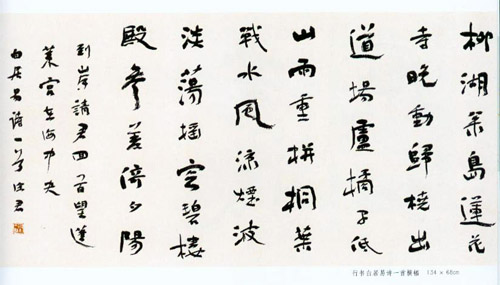 柳湖松島蓮花
寺晚動歸橈出
道場盧橘子低
山雨重栟桐葉
戰水風涼煙波
淡蕩搖空碧樓
殿參差倚夕陽
到岸請君回首望蓬
萊宮在海中央
白居易詩一首
行书白居易诗一首横幅 134 × 68cm